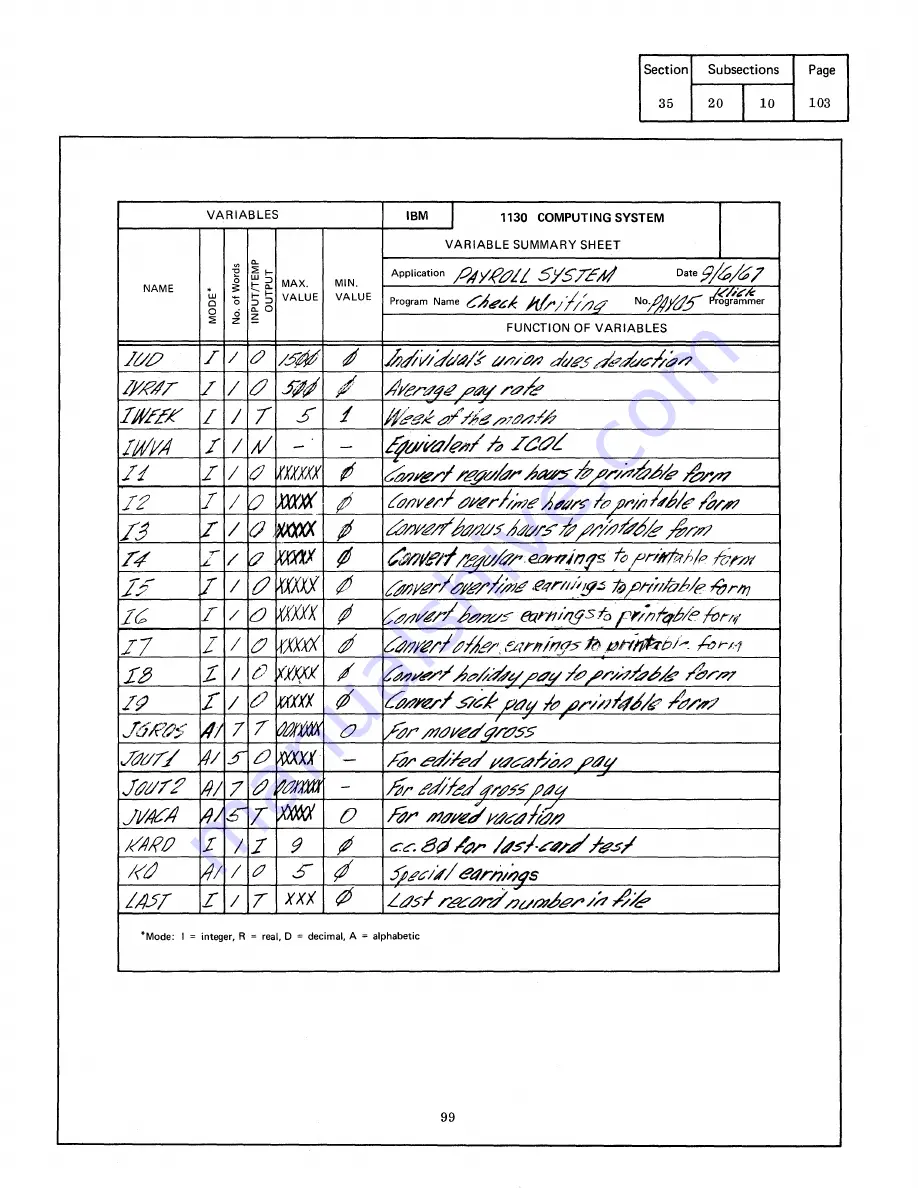 Section Subsections Page
35 20 10 103
VARIABLES IBM 1130 COMPUTING SYSTEM
VARIABLE SUMMARY SHEET
Application PAYROLL SYSTEM Date 9/6/67
Program Name Check Writing No. PAY05 Programmer Klick
NAME MODE* No. of Words INPUT/TEMP OUTPUT MAX. VALUE MIN. VALUE FUNCTION OF VARIABLES
IUD I 1 O 15ØØ Ø Individual's union dues deduction
IVRAT I 1 O 5ØØ Ø Average pay rate
IWEEK I 1 T 5 1 Week of the month
IWVA I 1 N - - Equivalent to ICOL
I1 I 1 O XXXXXX Ø Convert regular hours to printable form
I2 I 1 O XXXXX Ø Convert overtime hours to printable form
I3 I 1 O XXXXX Ø Convert bonus hours to printable form
I4 I 1 O XXXXX Ø Convert regular earnings to printable form
I5 I 1 O XXXXX Ø Convert overtime earnings to printable form
I6 I 1 O XXXXX Ø Convert bonus earnings to printable form
I7 I 1 O XXXXX Ø Convert other earnings to printable form
I8 I 1 O XXXXX Ø Convert holiday pay to printable form
I9 I 1 O XXXXX Ø Convert sick pay to printable form
JGROS A1 7 T OOXXXXX O For moved gross
JOUT1 A1 5 O XXXXX - For edited vacation pay
JOUT2 A1 7 O OOXXXXX - For edited gross pay
JVACA A1 5 T XXXXX O For moved vacation
KARD I 1 I 9 Ø c.c. 8Ø for last-card test
KO A1 1 O 5 Ø Special earnings
LAST I 1 T XXX Ø Last record number in file
*Mode: I = integer, R = real, D = decimal, A = alphabetic
manualshive.com
99